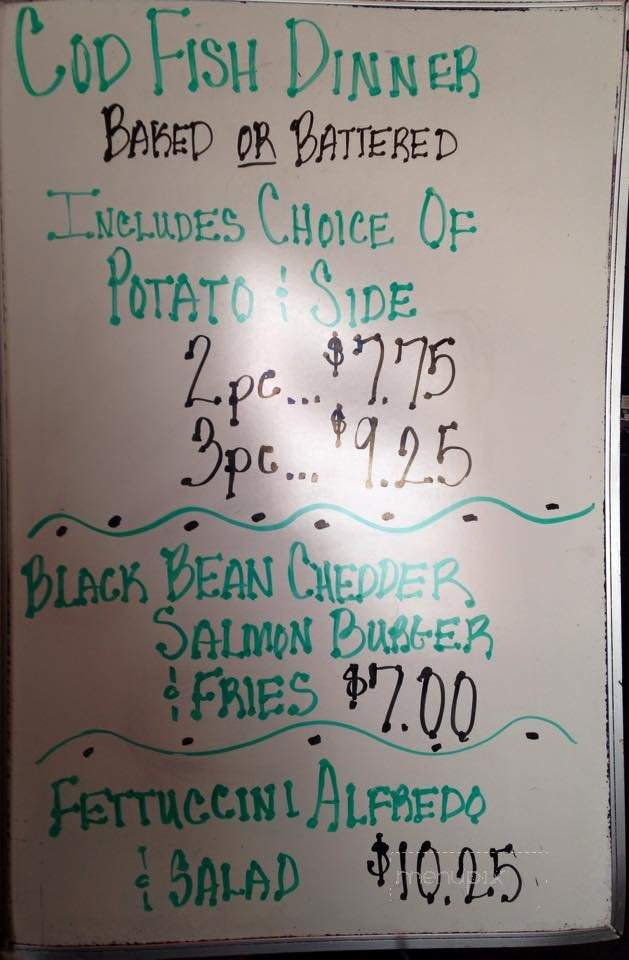 COD FISH DINNER
BAKED OR BATTERED
INCLUDES CHOICE OF
POTATO & SIDE
2pc... $7.75
3pc... $9.25
BLACK BEAN CHEDDER
SALMON BURGER
& FRIES $7.00
FETTUCCINI ALFREDO
& SALAD $10.25
menupix